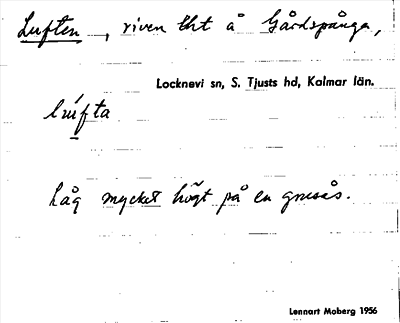 Luften, riven tht å Gårdspånga,
Locknevi sn, S. Tjusts hd, Kalmar län.
lúfta
låg mycket högt på en grusås.
Lennart Moberg 1956